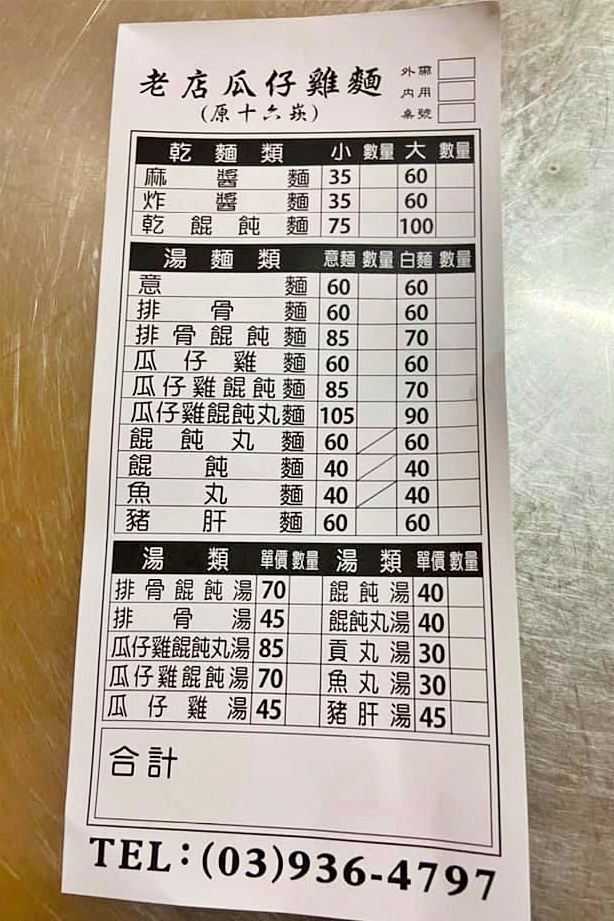 老店瓜仔雞麵
(原十六崁)
外帶
內用
桌號
乾麵類 小 數量 大 數量
麻醬麵 35 60
炸醬麵 35 60
乾餛飩麵 75 100
湯麵類 意麵 數量 白麵 數量
意麵 60 60
排骨麵 60 60
排骨餛飩麵 85 70
瓜仔雞麵 60 60
瓜仔雞餛飩麵 85 70
瓜仔雞餛飩丸麵 105 90
餛飩丸麵 60 60
餛飩麵 40 40
魚丸麵 40 40
豬肝麵 60 60
湯類 單價 數量 湯類 單價 數量
排骨餛飩湯 70 餛飩湯 40
排骨湯 45 餛飩丸湯 40
瓜仔雞餛飩丸湯 85 貢丸湯 30
瓜仔雞餛飩湯 70 魚丸湯 30
瓜仔雞湯 45 豬肝湯 45
合計
TEL：(03)936-4797